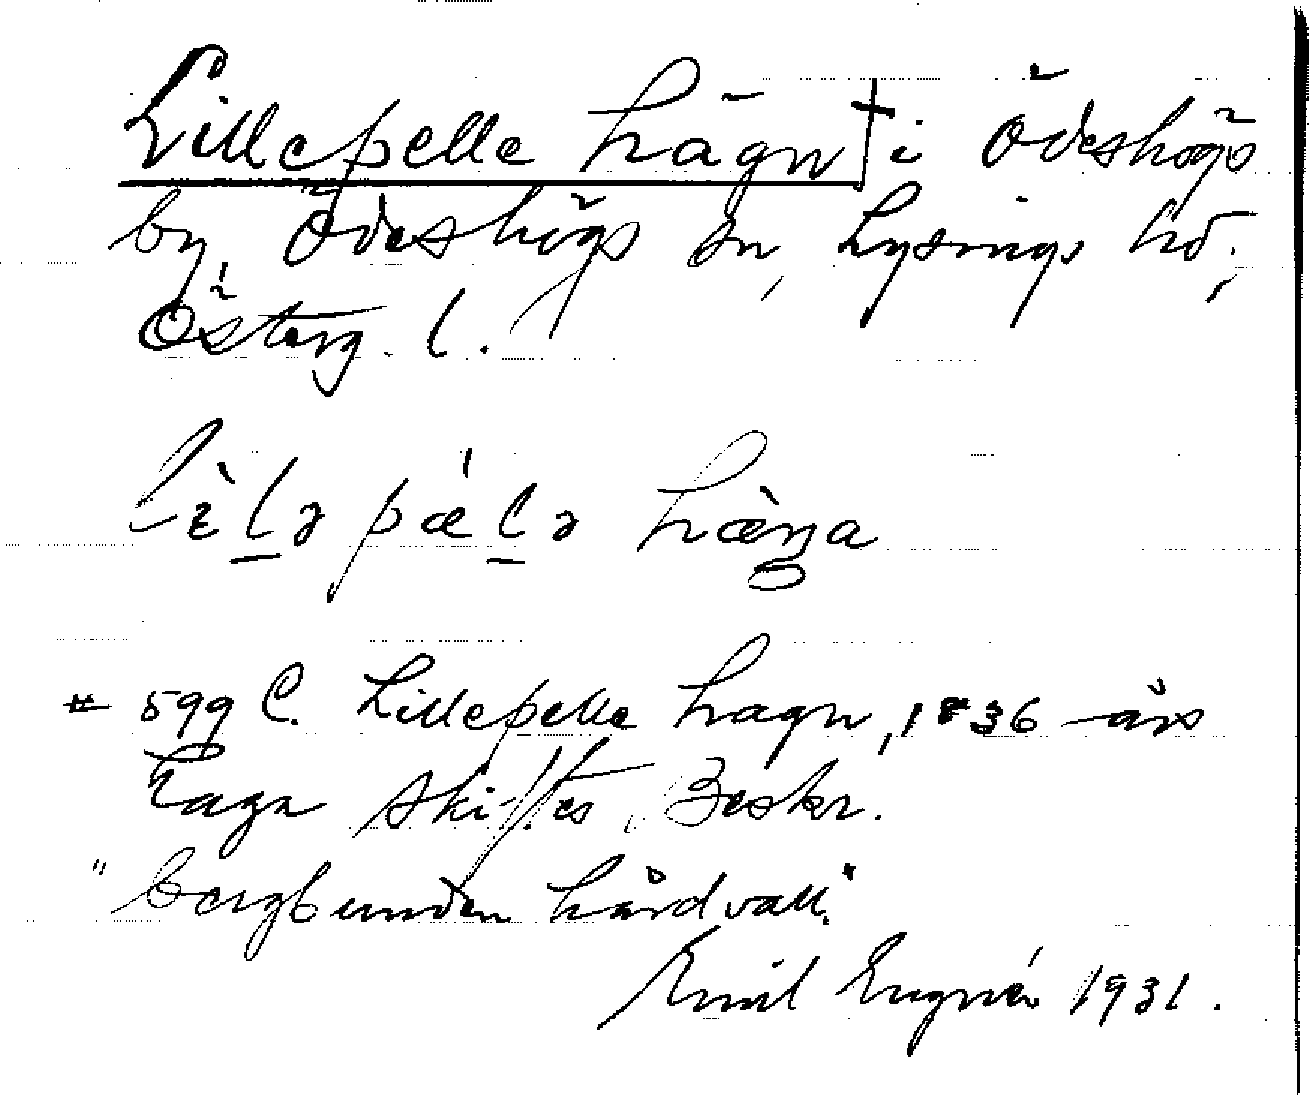 Lillepelle hägn † i Ödeshögs
by, Ödeshögs sn, Lysings hd,
Österg. l.
lèlə pǽlə hæ̀ŋa
# 599 C. Lillepelle hagn, 1836 års
Laga skiftes Beskr.
"bergbunden hårdvall."
Emil Engnér 1931.